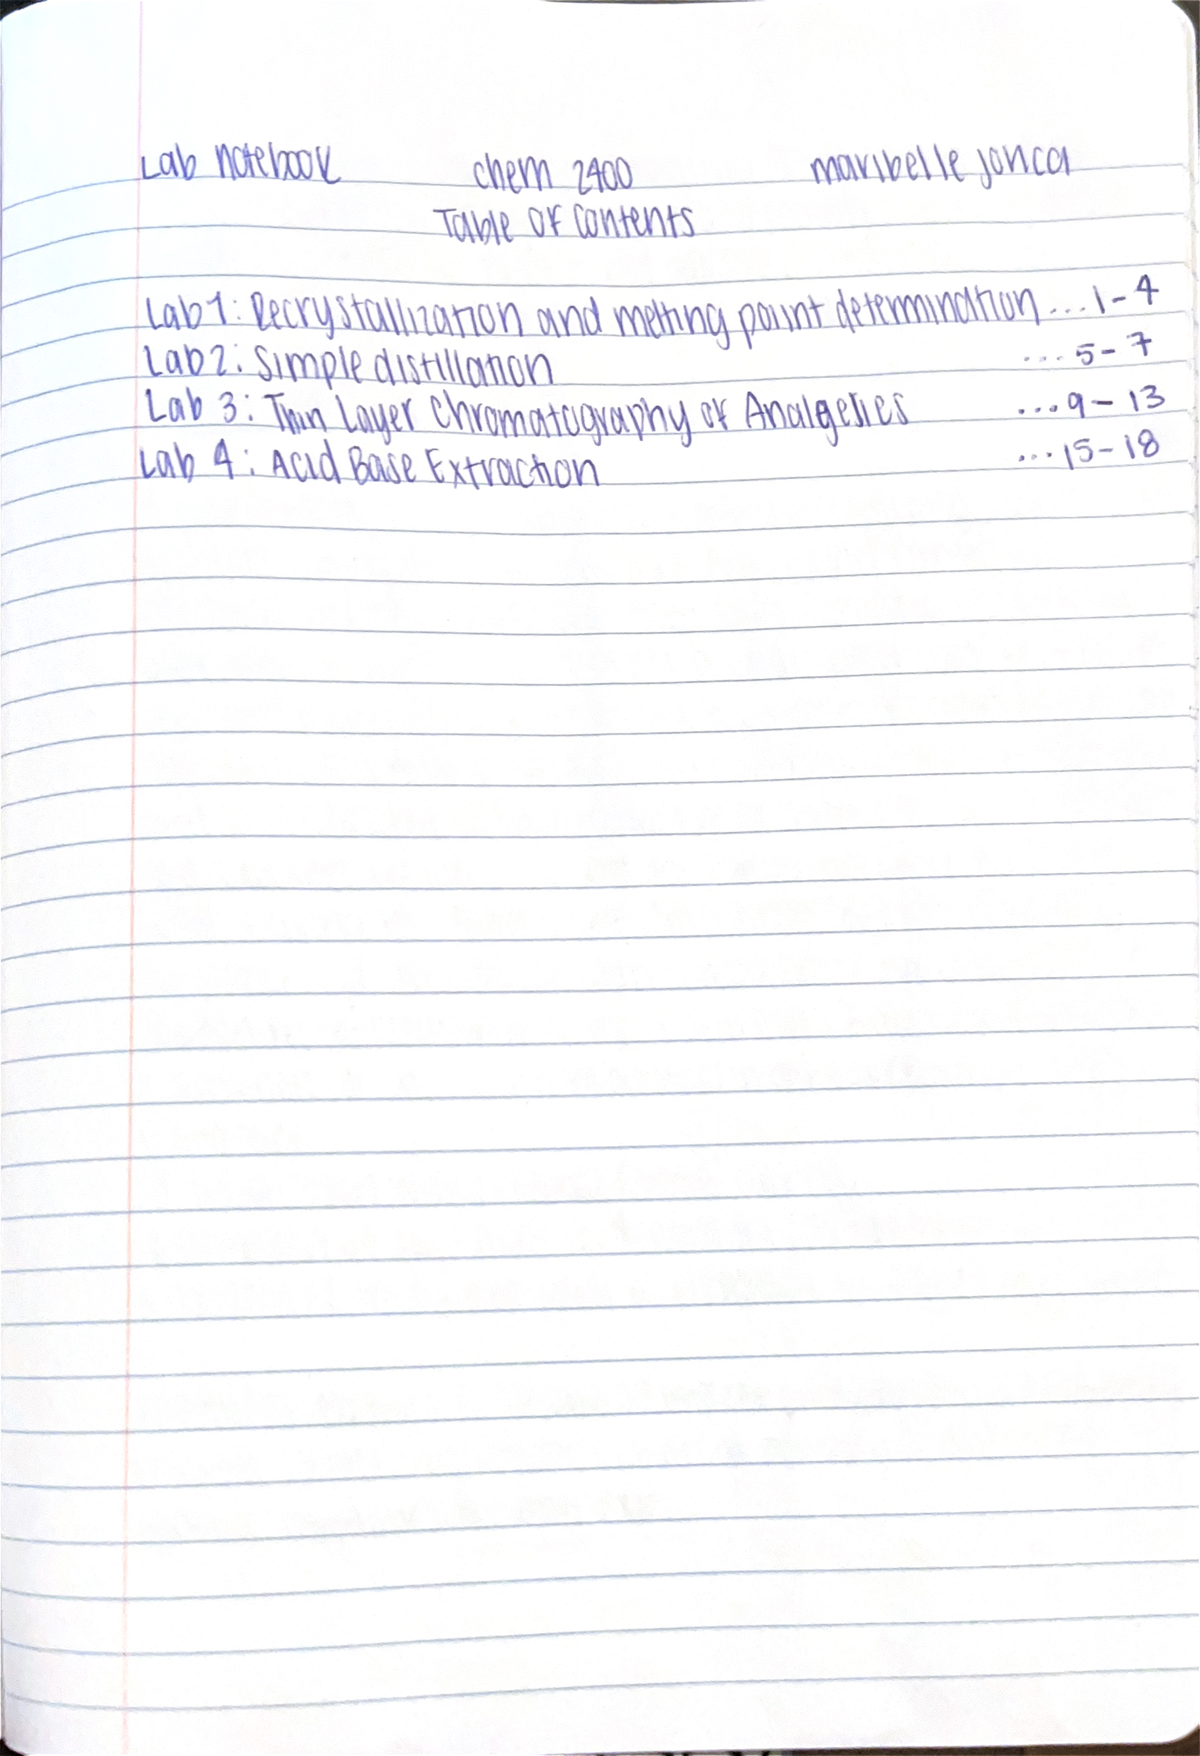 Lab notebook chem 2400 maribelle jonca
Table of contents
Lab 1: Recrystallization and melting point determination ...1-4
Lab 2: Simple distillation ...5-7
Lab 3: Thin Layer Chromatography of Analgesics ...9-13
Lab 4: Acid Base Extraction ...15-18